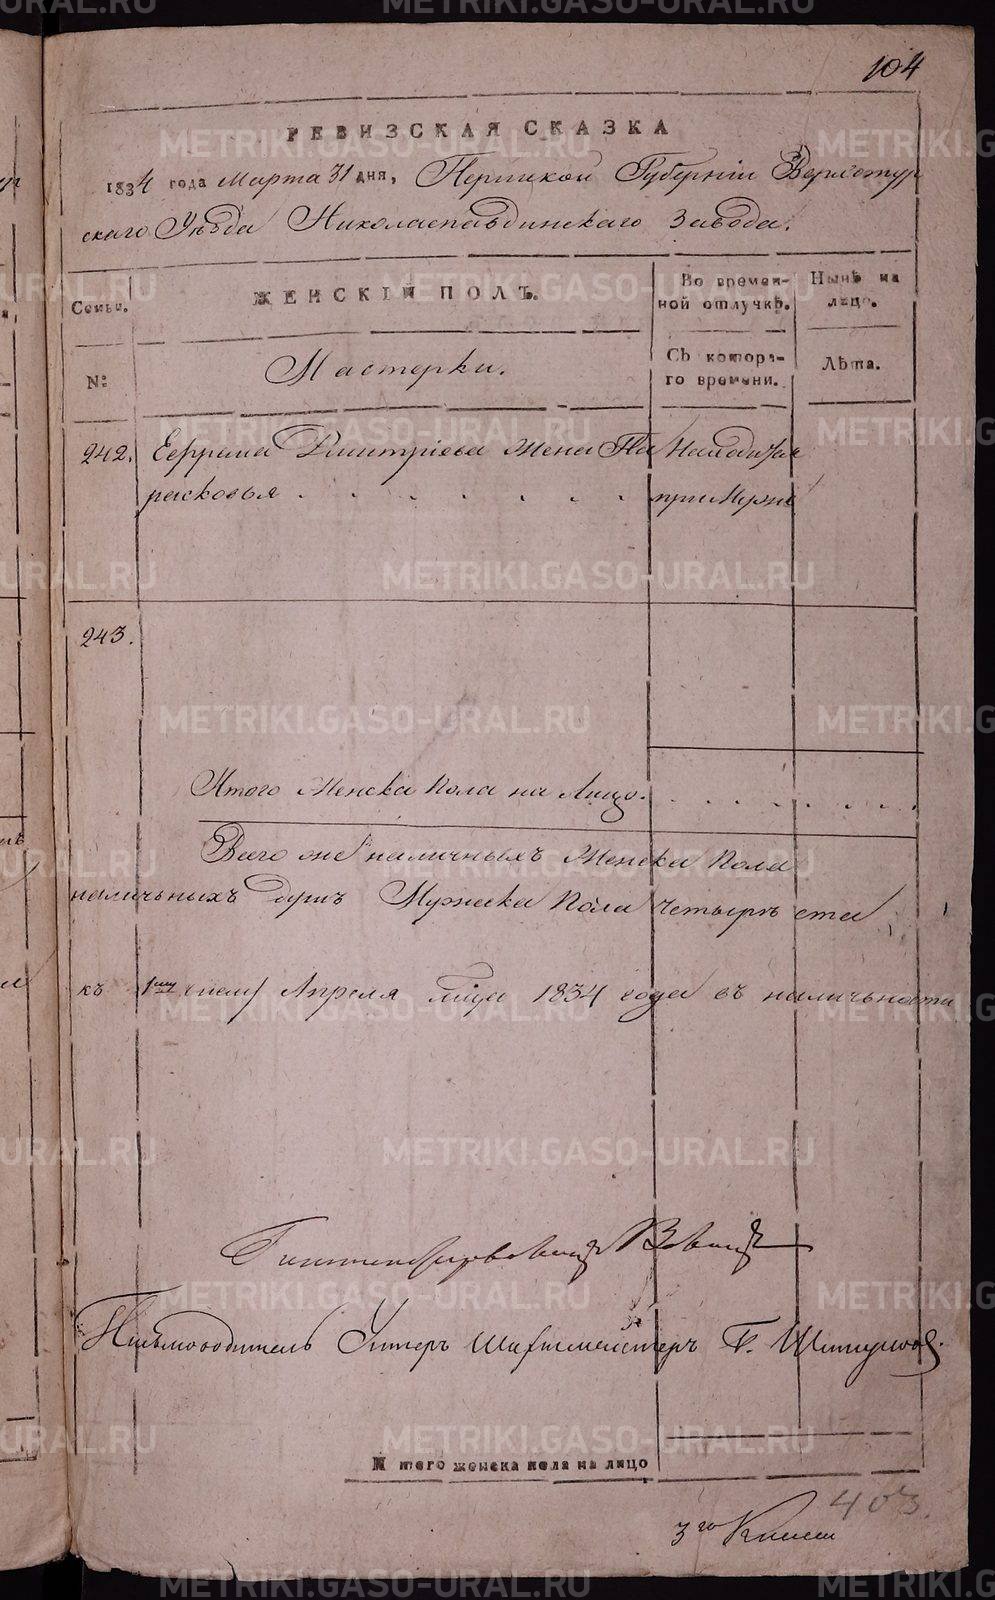 104
РЕВИЗСКАЯ СКАЗКА
1834 года Марта 31 дня, Пермской Губернiи Верхотур
скаго Уѣзда Николаепавдинскаго Завода.
Семьи.
ЖЕНСКIЙ ПОЛЪ.
Во времен-
ной отлучкѣ.
Нынѣ на
лицо.
№:
Мастерки.
Съ котора-
го времени.
Лѣта.
242. Ефрема Дмитрiева жена Па
Находится
расковья . . . . . . .
при Мужѣ
243.
Итого Женска пола на Лицо. . . . . . . . .
Всего же наличныхъ Женска пола
наличьныхъ душъ Мужеска пола четыре ста
къ 1му числу Апреля м-ца 1834 года въ наличьности
Письмоводитель Унтеръ Шихтмейстеръ
И того женска пола на лицо
403.
3го
METRIKI.GASO-URAL.RU